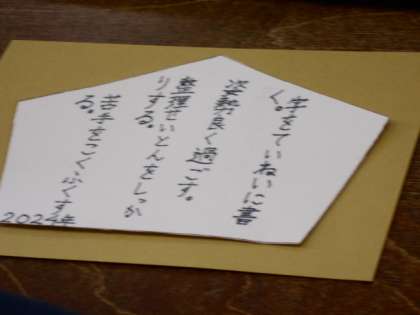 字をていねいに書
く。
姿勢良く過ごす。
整理せいとんをしっか
りする。
苦手をこくふくす
る。
2024年